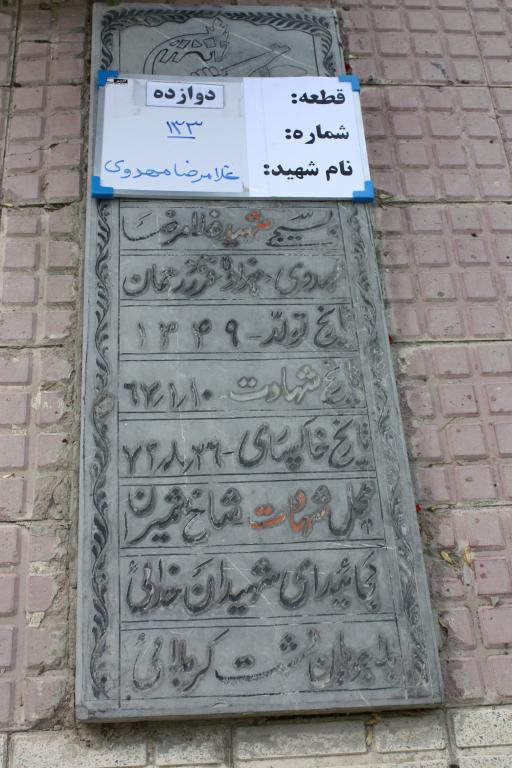 قطعه: دوازده
شماره: ۱۳۳
نام شهید: غلامرضا مهدوی
بسیجی شهید غلامرضا
مهدوی - فرزند
تاریخ تولد - ۱۳۴۹
تاریخ شهادت - ۶۷/۱/۱۰
تاریخ خاکسپاری - ۷۳/۸/۲۶
محل شهادت شاخ شمیران
کجائید ای شهیدان خدائی
بلاجویان دشت کربلائی